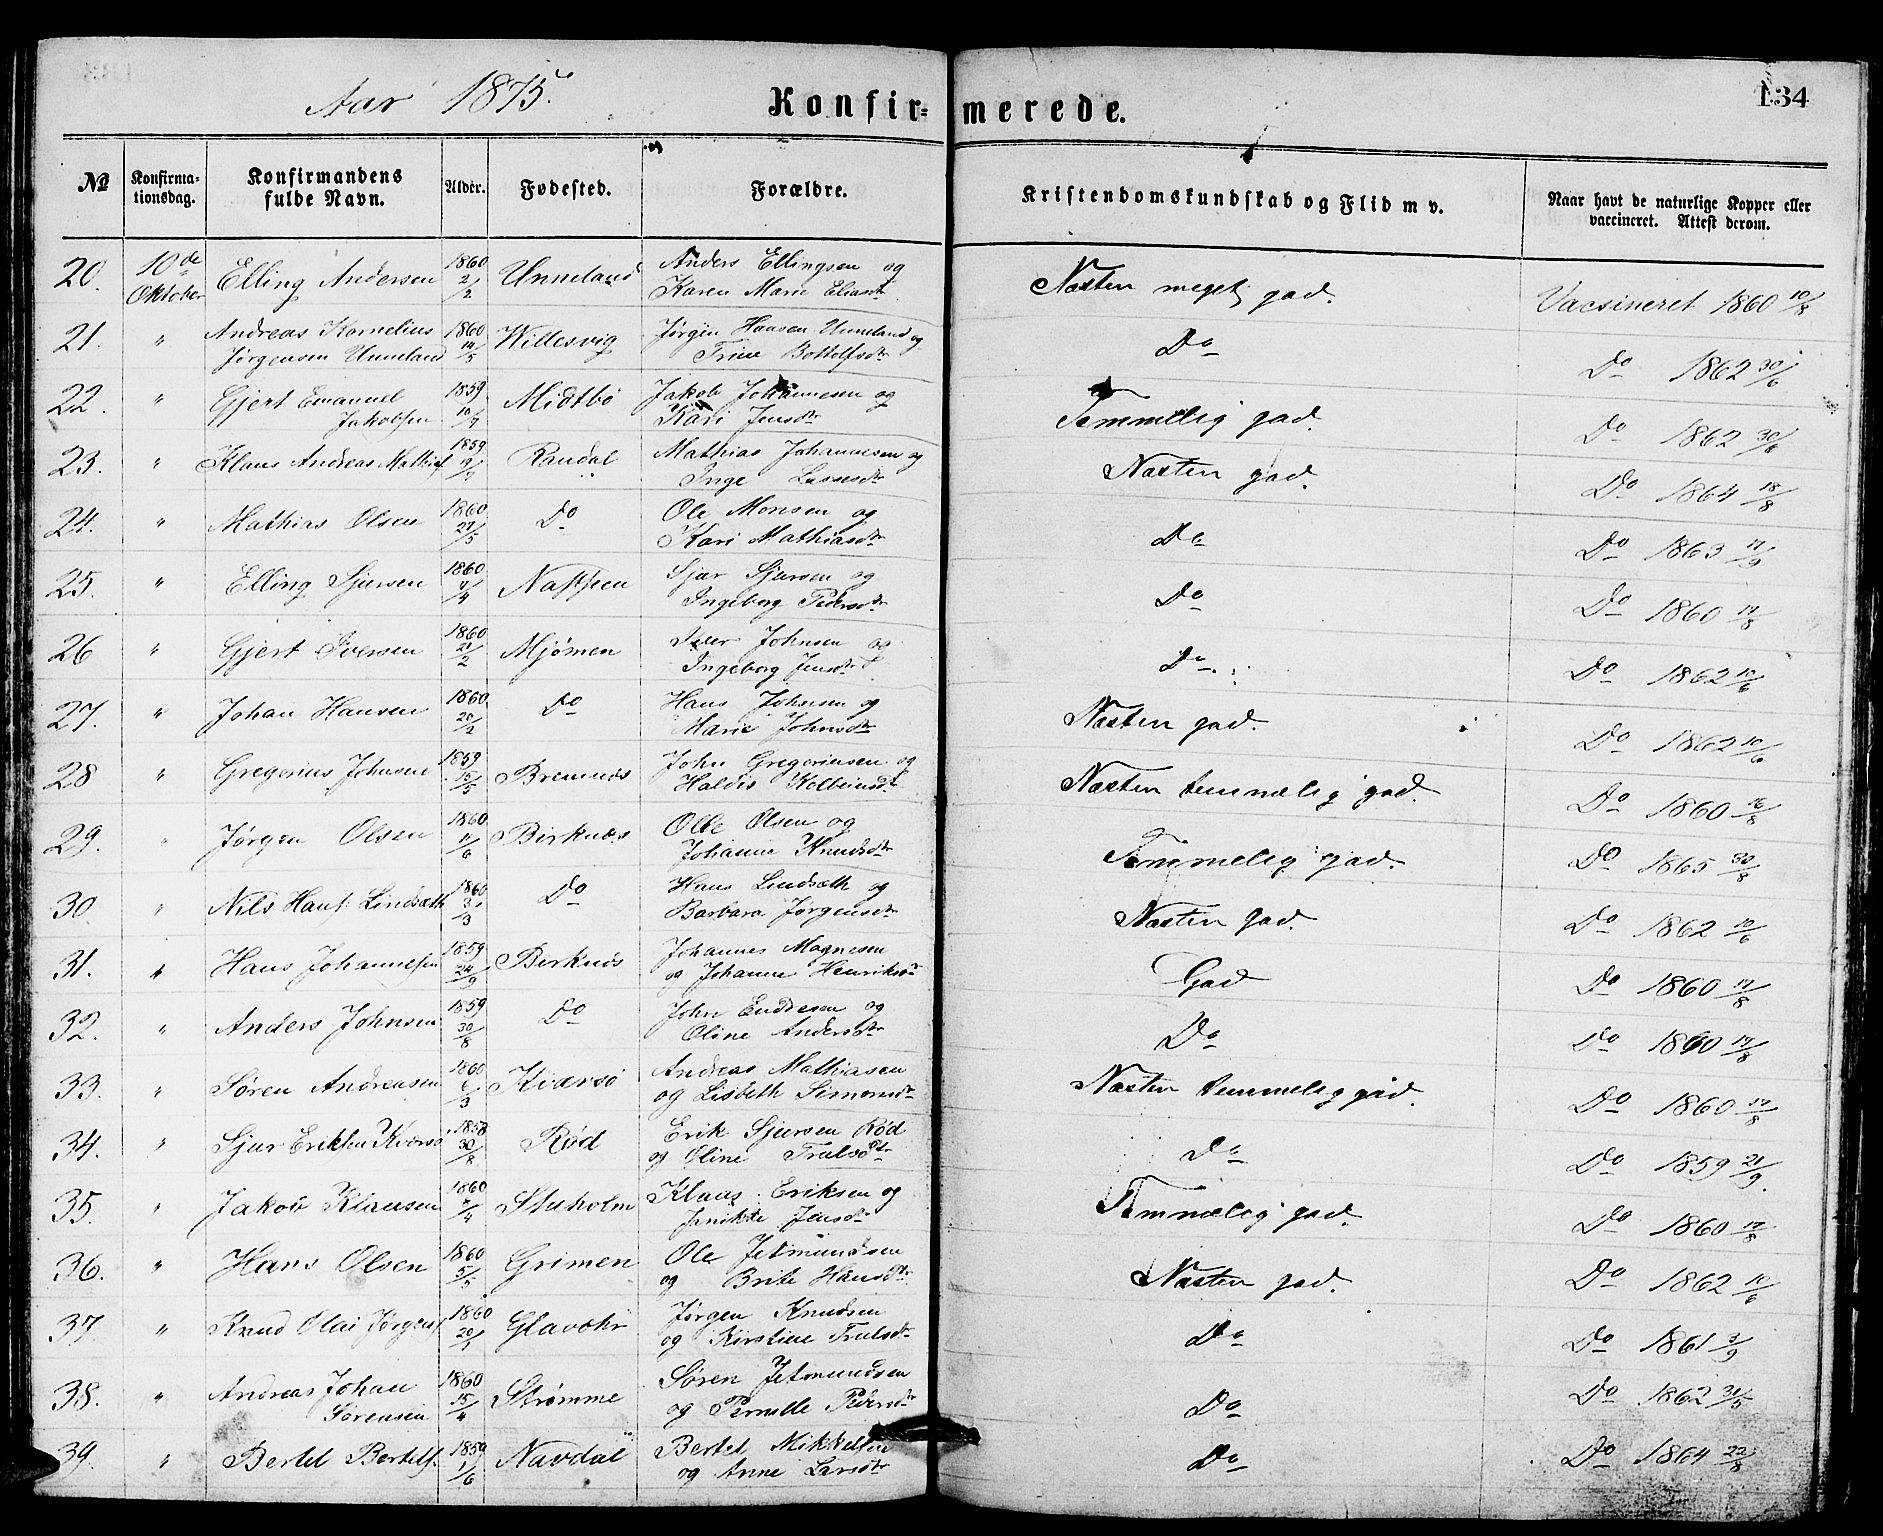 Aar 1875.
Konfir-merede.
134
No
Konfirma-tionsdag.
Konfirmandens fulde Navn.
Alder.
Fødested.
Forældre.
Kristendomskundskab og Flid m v.
Naar havt de naturlige Kopper eller vaccineret. Attest derom.
20. 10de Oktober Elling Andersen 1860 2/2 Unneland Anders Ellingsen og Karen Marie Eliasdtr Næsten meget god. Vacsineret 1860 10/8
21. " Andreas Kornelius Jørgensen Unneland 1860 14/5 Willesvig Jørgen Hansen Unneland og Trine Bottolfsdtr Do Do 1862 30/6
22. " Gjert Emanuel Jakobsen 1859 10/7 Midtbø Jakob Johannesen og Kari Jensdtr Temmelig god. Do 1862 30/6
23. " Klaus Andreas Mathias. 1859 Randal Mathias Johannesen og Inge Lassesdtr Næsten god. Do 1864 18/8
24. " Mathias Olsen 1860 27/5 Do Ole Monsen og Kari Mathiasdtr Do Do 1863 17/9
25. " Elling Sjursen 1860 Sjur Sjursen og Ingeborg Pedersdtr Do Do 1860 17/8
26 " Gjert Iversen 1860 21/2 Mjømen Iver Johnsen og Ingeborg Jensdtr Do Do 1862 10/6
27. " Johan Hansen 1860 20/2 Do Hans Johnsen og Marie Johnsdtr Næsten god. Do 1862 10/6
28 " Gregorius Johnsen 1859 15/5 Bremnes John Gregoriusen og Haldis Kolbeinsdtr Næsten temmelig god. Do 1860 16/8
29. " Jørgen Olsen 1860 Birknæs Olle Olsen og Johanne Knudsdtr Temmelig god. Do 1865 30/8
30. " Nils Hans. Lindsæth 1860 Do Hans Lindsæth og Barbara Jørgensdtr Næsten god. Do 1862 10/6
31. " Hans Johannesen 1859 24/9 Berknæs Johannes Magnesen og Johanne Henriksdtr God Do 1860 17/8
32. " Anders Johnsen 1859 30/8 Do John Endresen og Oline Andersdtr Do Do 1860 17/8
33. " Søren Andreasen 1860 6/3 Kværsø Andreas Mathiasen og Lisbeth Simonsdtr Næsten temmelig god. Do 1860 17/8
34. " Sjur Eriksen Kværsø 1858 30/8 Rød Erik Sjursen Rød og Oline Trulsdtr Do Do 1859 21/9.
35. " Jakob Klausen 1860 Stuholm Klaus Eriksen og Jensdtr Temmelig god. Do 1860 17/8
36. " Hans Olsen 1860 5/5 Grimen Ole Jetmundsen og Brite Hansdtr. Næsten god. Do 1862 10/6
37. " Knud Olai Jørgens. 1860 Glavohr Jørgen Knudsen og Kirstine Trulsdtr Do Do 1861 3/9
38. " Andreas Johan Sørensen 1860 15/4 Strømme Søren Jetmundsen og Pernille Pedersdtr Do Do 1862 31/5
39. " Bertel Bertels. 1859 1/6 Navdal Bertel Mikkelsen og Anne Larsdtr Do Do 1864 22/8